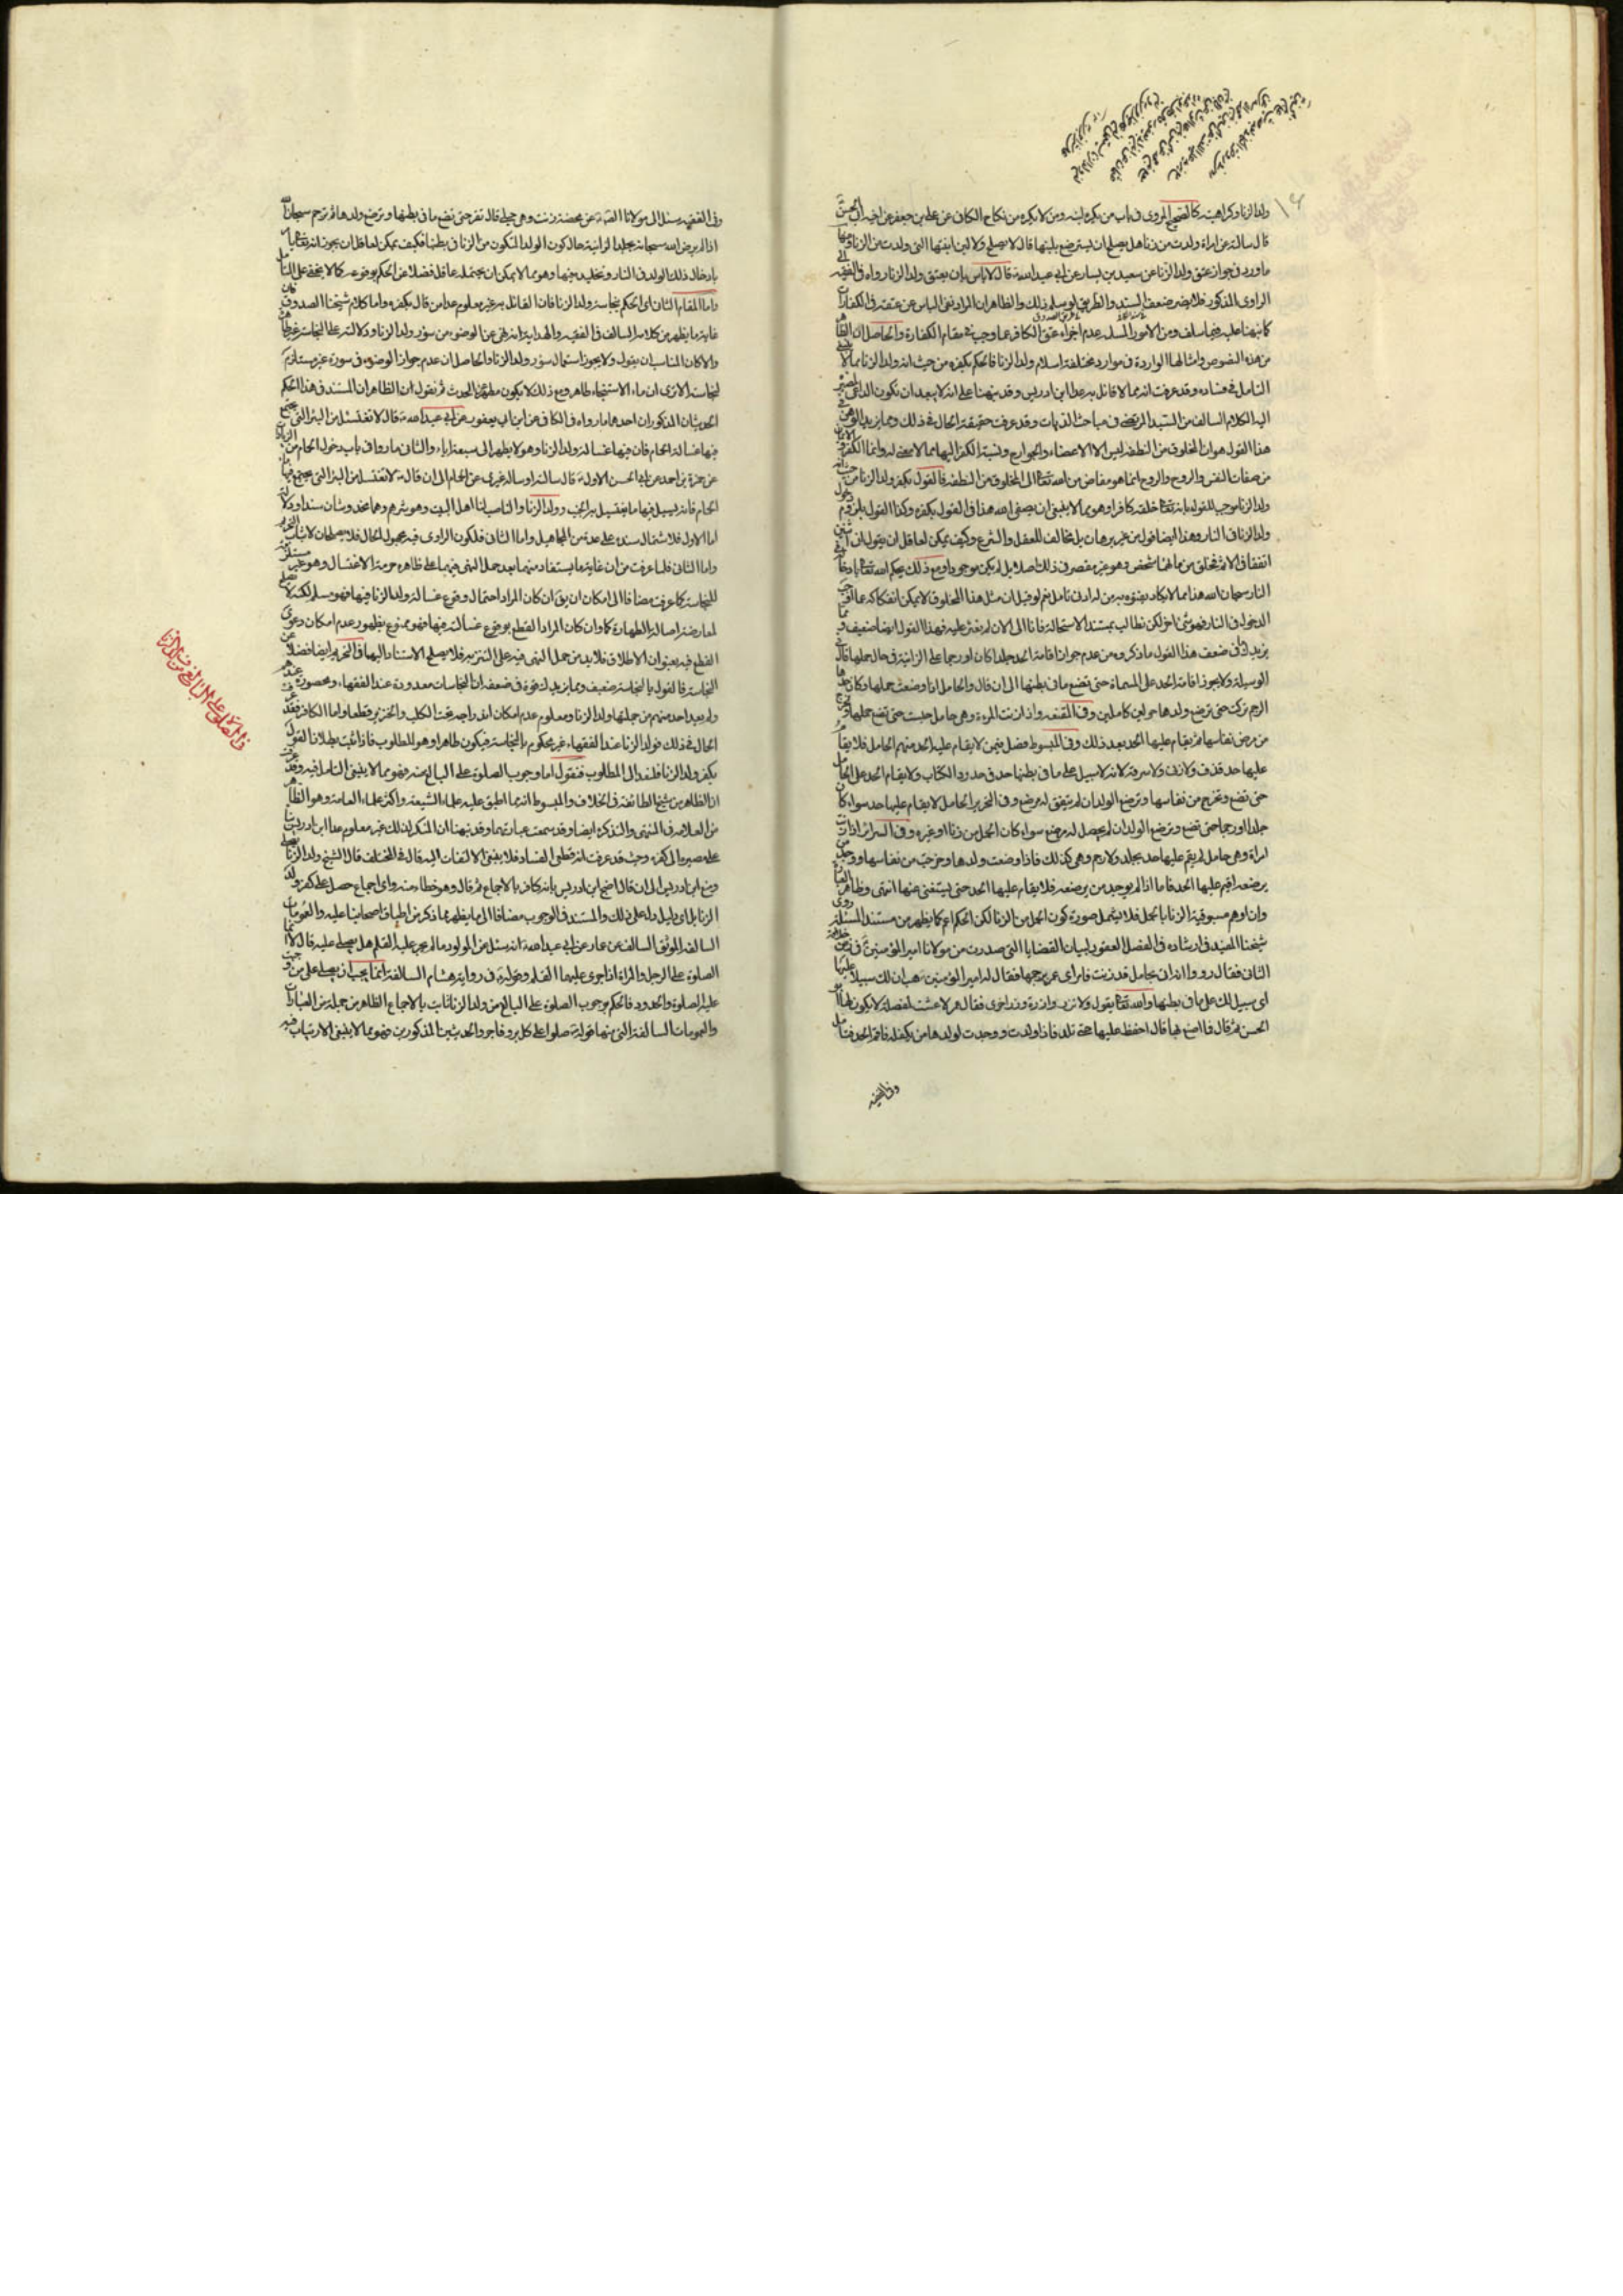 ولد الزنا وكراهيته كالصحيح المروى فى باب من يكره لبنه ومن لا يكره من نكاح الكافى عن على بن جعفر عن اخيه ابى الحسن
قال سالته عن امراة ولدت من زنا هل يصلح ان يسترضع بلبنها قال لا يصلح ولا لبن ابنتها التى ولدت من الزنا ومنها
ما ورد فى جواز عتق ولد الزنا عن سعيد بن يسار عن ابى عبد الله قال لا باس بان يعتق ولد الزنا رواه فى الفقيه
الراوى المذكور فلا يضر ضعف السند والطريق لو سلم ذلك والظاهر ان المراد نفى الباس عن عتقه فى الكفارات
كما نبهنا عليه فيما سلف ومن الامور المسلمة عدم اجزاء عتق الكافر عما وجب فى مقام الكفارة والحاصل ان الظاهر
من هذه النصوص وامثالها الواردة فى موارد مختلفة اسلام ولد الزنا فالحكم بكفره من حيث انه ولد الزنا مما لا
التامل فى فساده وقد عرفت انه مما لا قائل به عدا ابن ادريس وقد نبهنا على انه لا يبعد ان يكون الداعى
اليه الكلام السالف من السيد المرتضى فى مباحث الديات وقد عرفت حقيقة الحال فى ذلك ومما يزيد الوهن
هذا القول هو ان المخلوق من النطفة ليس الا الاعضاء والجوارح ونسبة الكفر اليها مما لا معنى له وانما الكفر
من صفات النفس والروح والروح انما هو مفاض من الله تعالى الى المخلوق من النطفة فالقول بكفر ولد الزنا من حيث انه
ولد الزنا موجب للقول بانه تعالى خلقه كافرا وهو مما لا ينبغى ان يصغى اليه هذا فى القول بكفره وكذا القول بلزوم دخول
ولد الزنا فى النار وهذا ايضا قول من غير برهان بل مخالف للعقل والشرع وكيف يمكن لعاقل ان يقول ان
اتفقا فى الاثم فخلق من مائهما شخص وهو غير مقصر فى ذلك اصلا بل لم يكن موجودا ومع ذلك يحكم الله تعالى بادخاله
النار سبحان الله هذا مما لا يكاد يتفوه به من له ادنى تامل نعم لو قيل ان مثل هذا المخلوق لا يمكن انفكاكه عما
الدخول فى النار فهو شئ اخر لكن نطالب بمستند الاستحالة فانا الى الان لم نعثر عليه فهذا القول ايضا ضعيف ومما
يزيدك فى ضعف هذا القول ما ذكروه من عدم جواز اقامة الحد جلدا كان او رجما على الزانية فى حال حملها قال فى
الوسيلة ولا يجوز اقامة الحد على المسماة حتى تضع ما فى بطنها الى ان قال والحامل اذا وضعت حملها وكان حدها
الرجم تركت حتى ترضع ولدها حولين كاملين وفى المقنعة واذا زنت المرءة وهى حامل حبست حتى تضع حملها وتخرج
من مرض نفاسها ثم يقام عليها الحد بعد ذلك وفى المبسوط فصل فيمن لا يقام عليه الحد منهم الحامل فلا يقام
عليها حد قذف ولا زنا ولا سرقة لانه لا سبيل على ما فى بطنها حد فى حدود الكتاب ولا يقام الحد على الحامل
حتى تضع وتخرج من نفاسها وترضع الولد ان لم يتفق له مرضع وفى التحرير الحامل لا يقام عليها حد سواء كان
جلدا او رجما حتى تضع وترضع الولد ان لم يحصل له مرضع سواء كان الحمل من زنا او غيره وفى السرائر اذا زنت
امراة وهى حامل لم يقم عليها حد بجلد ولا رجم وهى كذلك فاذا وضعت ولدها وخرجت من نفاسها ووجد من
يرضعه اقيم عليها الحد فاما اذا لم يوجد من يرضعه فلا يقام عليها الحد حتى يستغنى عنها انتهى وظاهر العبارة
وان اوهم مسبوقية الزنا بالحمل فلا يشمل صورة كون الحمل من الزنا لكن الحكم اعم كما يظهر من مستند المسئلة روى
شيخنا المفيد فى ارشاده فى الفصل المعقود لبيان القضايا التى صدرت من مولانا امير المؤمنين فى زمن خلافة
الثانى فقال رووا انه اتى بحامل قد زنت فامر اى عمر برجمها فقال له امير المؤمنين هب ان لك سبيلا عليها
اى سبيل لك على ما فى بطنها والله تعالى يقول ولا تزر وازرة وزر اخرى فقال عمر لا عشت لمعضلة لا يكون لها ابو
الحسن ثم قال فما اصنع بها قال احفظ عليها حتى تلد فاذا ولدت ووجدت لولدها من يكفله فاقم الحد فتامل
وفى الفقيه
وفى الفقيه سئل الى مولانا الصادق عن محصنة زنت وهى حبلى قال تقر حتى تضع ما فى بطنها وترضع ولدها ثم ترجم سبحان الله
اذا لم يرض الله سبحانه بجلد الزانية حال كون الولد المتكون من الزنا فى بطنها فكيف يمكن لعاقل ان يجوز انه تعالى يامر
بادخال ذلك الولد فى النار وتخليده فيها وهو مما لا يمكن ان يحتمله عاقل فضلا عن الحكم بوقوعه كما لا يخفى على المتامل
واما المقام الثانى اى الحكم بنجاسة ولد الزنا فان القائل به غير معلوم عدا من قال بكفره واما كلام شيخنا الصدوق فان
غاية ما يظهر من كلامه السالف فى الفقيه والهداية انه نهى عن الوضوء من سؤر ولد الزنا ودلالته على النجاسة غير ظاهرة
والا كان المناسب ان يقول ولا يجوز استعمال سؤر ولد الزنا والحاصل ان عدم جواز الوضوء فى سورة غير مستلزم
لنجاسته الا ترى ان ماء الاستنجاء طاهر ومع ذلك لا يكون مطهرا للحدث ثم نقول ان الظاهر ان المستند فى هذا الحكم
الحديثان المذكوران احدهما ما رواه فى الكافى عن ابن ابى يعفور عن ابى عبد الله قال لا تغتسل من البئر التى تجتمع
فيها غسالة الحمام فان فيها غسالة ولد الزنا وهو لا يطهر الى سبعة اباء والثانى ما رواه فى باب دخول الحمام من الزيادات
عن حمزة بن احمد عن ابى الحسن الاول قال سالته او ساله غيرى عن الحمام الى ان قال ولا تغتسل من البئر التى تجتمع فيها ماء
الحمام فانه يسيل فيها ما يغتسل به الجنب وولد الزنا والناصب لنا اهل البيت وهو شرهم وهما مخدوشان سندا ودلالة
اما الاول فلاشتمال سنده على عدة من المجاهيل واما الثانى فلكون الراوى فيه مجهول الحال فلا يصلحان لاثبات التحريم
واما الثانى فلما عرفت من ان غاية ما يستفاد منهما بعد حمل النهى فيهما على ظاهره حرمة الاغتسال وهو غير مستلزم
للنجاسة كما عرفت مضافا الى امكان ان يق ان كان المراد احتمال وقوع غسالة ولد الزنا فيها فهو مسلم لكنه لا يصلح
لمعارضة اصالة الطهارة كما وان كان المراد القطع بوقوع غسالته فيها فهو ممنوع بظهور عدم امكان دعوى
القطع فيه بعنوان الاطلاق فلا بد من حمل النهى فيه على التنزيه فلا يصلح الاستناد اليهما فى التحريم ايضا فضلا عن
النجاسة فالقول بالنجاسة ضعيف ومما يزيدك قوة فى ضعفه ان النجاسات معدودة عند الفقهاء ومحصورة عندهم
ولم يعد احد منهم من جملتها ولد الزنا ومعلوم عدم امكان اندراجه تحت الكلب والخنزير قطعا واما الكافر فقد عرفت
الحال فى ذلك فولد الزنا عند الفقهاء غير محكوم بالنجاسة فيكون طاهرا وهو المطلوب فاذا ثبت بطلان القول
بكفر ولد الزنا فلنعد الى المطلوب فنقول اما وجوب الصلوة على البالغ منه فهو مما لا ينبغى التامل فيه وقد عرفت
ان الظاهر من شيخ الطائفة فى الخلاف والمبسوط انه مما اطبق عليه علماء الشيعة واكثر علماء العامة وهو الظاهر
من العلامة فى المنتهى والتذكرة ايضا وقد سمعت عباراتهما وقد نبهنا ان المنكر لذلك غير معلوم عدا ابن ادريس بناء
على مصيره الى كفره وحيث قد عرفت انه قطعى الفساد فلا ينبغى الالتفات اليه قال فى المختلف قال الشيخ ولد الزنا يصلى
ومنع ابن ادريس الى ان قال احتج ابن ادريس بانه كافر بالاجماع ثم قال وهو خطاء منه واى اجماع حصل على كفر ولد
الزنا بل اى دليل دله على ذلك والمستند فى الوجوب مضافا الى ما يظهر مما ذكر من اطباق اصحابنا عليه والعمومات
السالفة الموثق السالف عن عمار عن ابى عبد الله انه سئل عن المولود ما لم يجر عليه القلم هل يصلى عليه قال لا انما
الصلوة على الرجل والمراة اذا جرى عليهما القلم وقوله فى رواية هشام السالفة انما يجب ان يصلى على من وجبت
عليه الصلوة والحدود فالحكم بوجوب الصلوة على البالغ من ولد الزنا ثابت بالاجماع الظاهر من جملة من العبارات
والعمومات السالفة التى منها قوله صلوا على كل بر وفاجر والحديثين المذكورين فهو مما لا ينبغى الارتياب فيه
فى الصلوة على البالغ من ولد الزنا